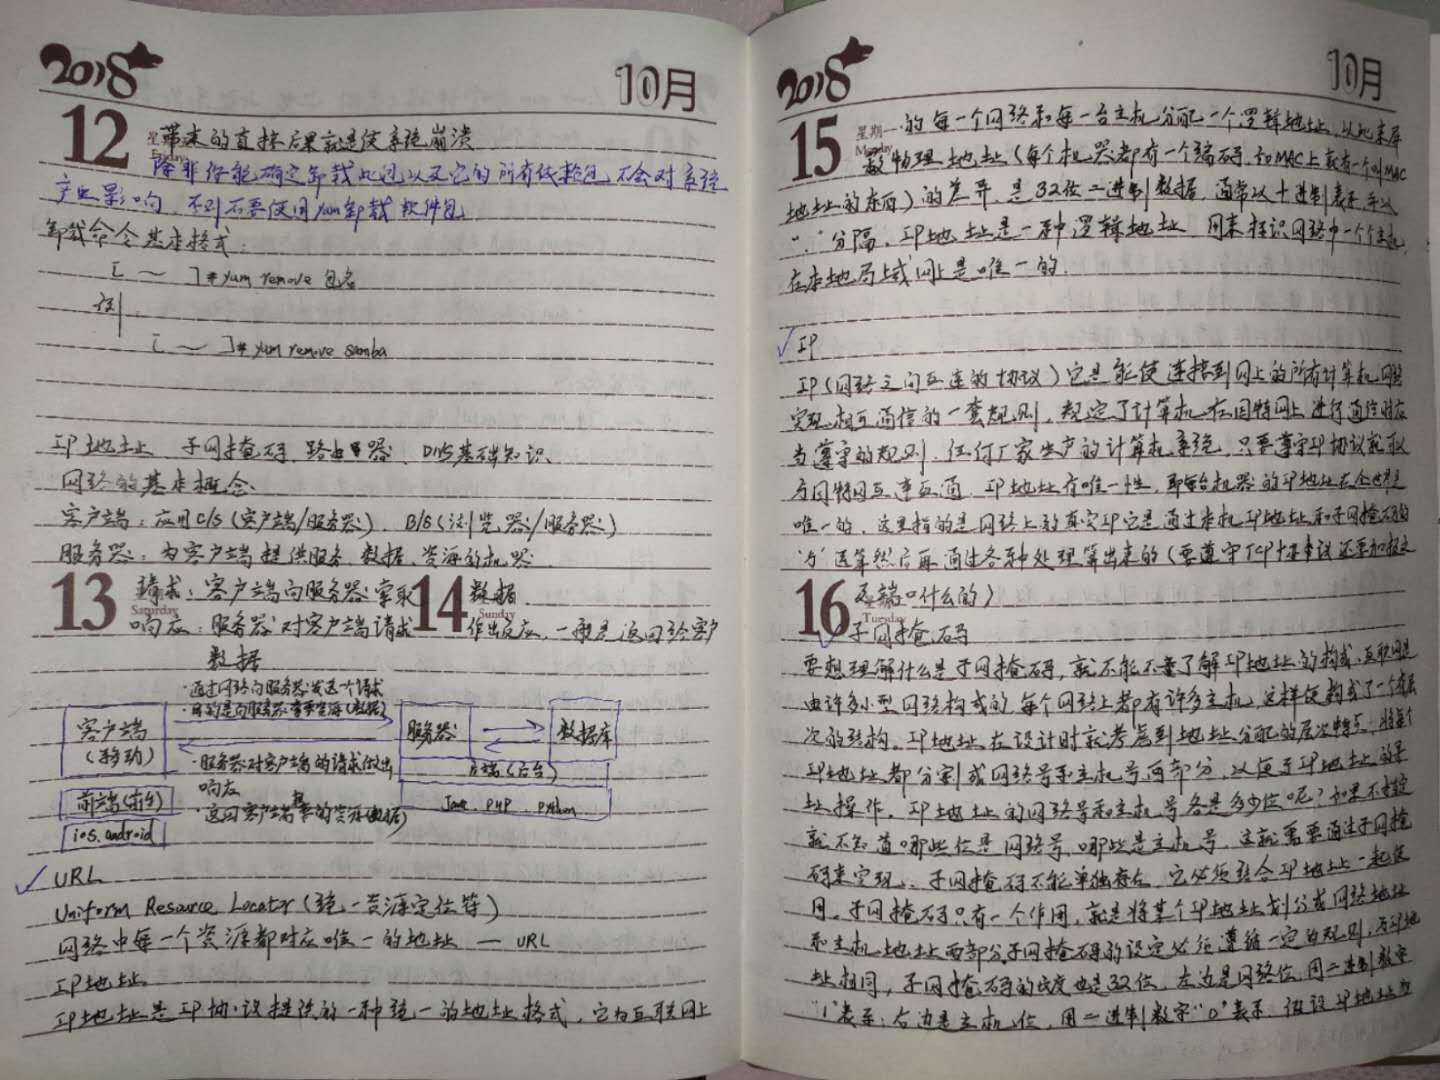 2018
10月
12
星
Friday
带来的直接后果就是使系统崩溃
除非你能确定卸载此包以及它的所有依赖包不会对系统
产生影响，不则不要使用yum卸载软件包
卸载命令基本格式：
[ ~ ]# yum remove 包名
例
[ ~ ]# yum remove samba
IP地址 子网掩码 路由器、DNS基础知识
网络的基本概念
客户端：应用C/S（客户端/服务器） B/S（浏览器/服务器）
服务器：为客户端提供服务、数据、资源的机器
13
Saturday
14
Sunday
请求：客户端向服务器索取数据.
响应：服务器对客户端请求作出反应，一般是返回给客户
数据
·通过网络向服务器发送个请求
·目的是向服务器索要资源（数据）
客户端
（移动）
服务器
数据库
·服务器对客户端的请求做出
响应
·返回客户端 的资源（数据）
后端（后台）
前端（前台）
Java. PHP. python
ios. android
✓ URL
Uniform Resource Locator（统一资源定位符）
网络中每一个资源都对应唯一的地址 — URL
IP地址
IP地址是IP协议提供的一种统一的地址格式，它为互联网上
2018
10月
15
星期一
Monday
的每一个网络和每一台主机分配一个逻辑地址，以此来屏
蔽物理地址（每个机器都有一个编码，如MAC上就有一个叫MAC
地址的东西）的差异，是32位二进制数据，通常以十进制表示，并以
“.”分隔，IP地址是一种逻辑地址 用来标识网络中一个个主机，
在本地局域网上是唯一的.
✓ IP
IP（网络之间互连的协议）它是能使连接到网上的所有计算机网络
实现相互通信的一套规则，规定了计算机在因特网上进行通信时应
当遵守的规则.任何厂家生产的计算机系统，只要遵守IP协议就可以
与因特网互连互通.IP地址有唯一性，即每台机器的IP地址在全世界是
唯一的.这里指的是网络上的真实IP它是通过本机IP地址和子网掩码的
“与”运算然后再通过各种处理算出来的（要遵守TCP协议还要加报文
16
Tuesday
及端口什么的）
✓ 子网掩码
要想理解什么是子网掩码，就不能不了解IP地址的构成.互联网是
由许多小型网络构成的，每个网络上都有许多主机，这样便构成了一个有层
次的结构.IP地址在设计时就考虑到地址分配的层次特点，将每个
IP地址都分割成网络号和主机号两部分，以便于IP地址的寻
址操作.IP地址的网络号和主机号各是多少位呢？如果不指定
就不知道哪些位是网络号、哪些是主机号，这就需要通过子网掩
码来实现.子网掩码不能单独存在，它必须结合IP地址一起使
用.子网掩码只有一个作用，就是将某个IP地址划分成网络地址
和主机地址两部分子网掩码的设定必须遵循一定的规则，与IP地
址相同，子网掩码的长度也是32位，左边是网络位，用二进制数字
“1”表示；右边是主机位，用二进制数字“0”表示.假设IP地址为